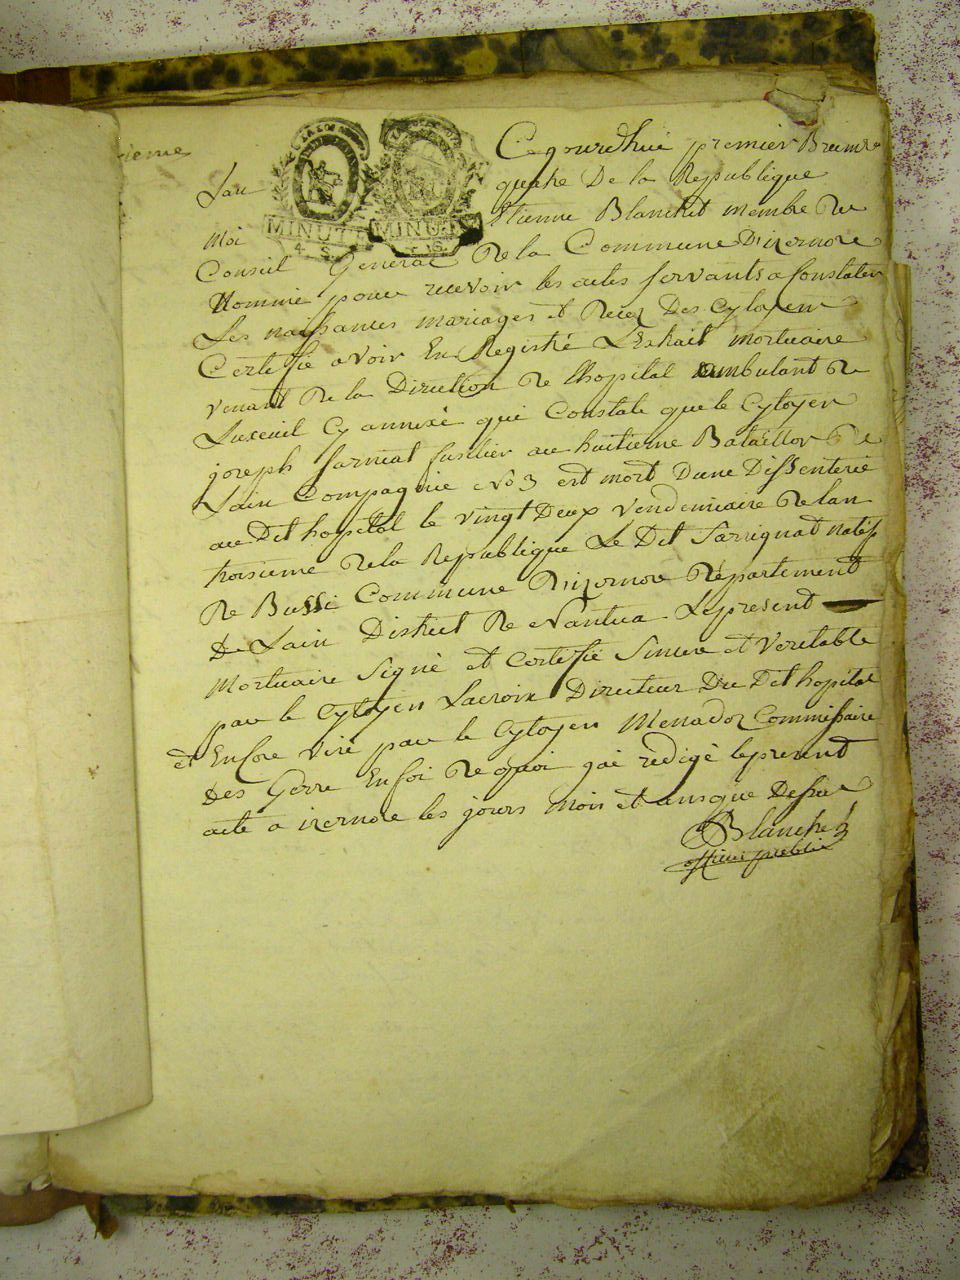 rieme
Cejourdhui premier Brume
Lan quatre De la Republique
MINUTE MINUTE
4. S.
Moi Etienne Blanchet membre De
Conseil General De la Commune D'izernore
Nommé pour recevoir les actes servants a Constater
Les naissances mariages et Decez Des Cytoyens
Certifie avoir En Registré L'Extrait mortuaire
venant De la Direction De lhopital ambulant De
Luxeuil Cy annexé qui Constate que le Cytoyen
joseph fusilier au huitieme Bataillon De
Lain Compagnie No 3 est mort D'une Dissenterie
au Dit hopital le vingt Deux vendemiaire De lan
troisieme De la Republique Le Dit Sarrignat natif
De Bussi Commune D'izernore Département
De Lain District De Nantua Le present
Mortuaire Signé et Certifié Sincere et Veritable
par le Cytoyen Lacroix Directeur Du Dit hopital
et Enfore visé par le Cytoyen Commissaire
Des Gerre En foi De quoi jai redigé le present
acte a izernore les jours mois et ansque Dessus
Blanchet
officier public